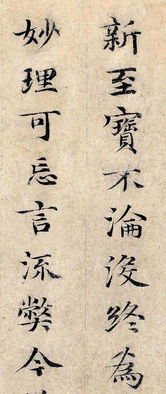 新至寶不淪沒終為
妙理可忘言流弊今